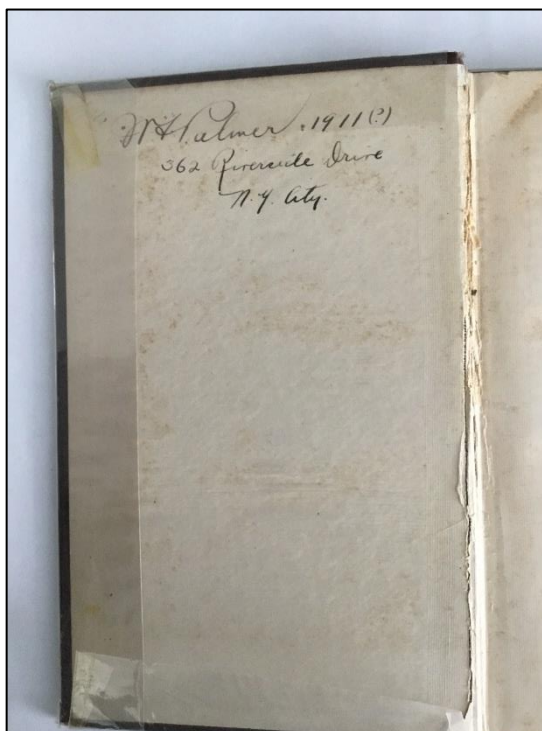 W H Palmer. 1911(?)
362 Riverside Drive
N. Y. City.